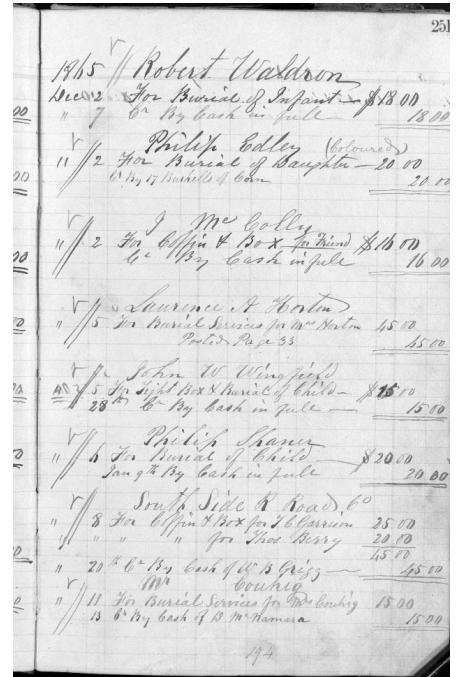 251
1865 // Robert Waldron
Dec 2 For Burial of Infant — $18 00
" 7 Cr By Cash in full 18 00
Philip Edley (Coloured)
" // 2 For Burial of Daughter — 20 00
Cr By 17 Bushells of Corn 20 00
J McColly
" // 2 For Coffin & Box for Friend $16 00
Cr By Cash in full 16 00
Laurence A Horton
" // 5 For Burial Services for Mrs Horton 45 00
Posted Page 33 45 00
John W Wingfield
// 5 For Tight Box & Burial of Child — $15 00
28th Cr By Cash in full — 15 00
Philip Shaner
" // 6 For Burial of Child — $20 00
Jan 9th By Cash in full 20 00
South Side R Road Co
" // 8 For Coffin & Box for Garrison 25 00
" " " for Thos Berry 20 00
45 00
" 20th Cr By Cash of W B Grigg — 45 00
Mr Couhig
" // 11 For Burial Services for Mrs Couhig 15 00
13 Cr By Cash of McNamara 15 00
194